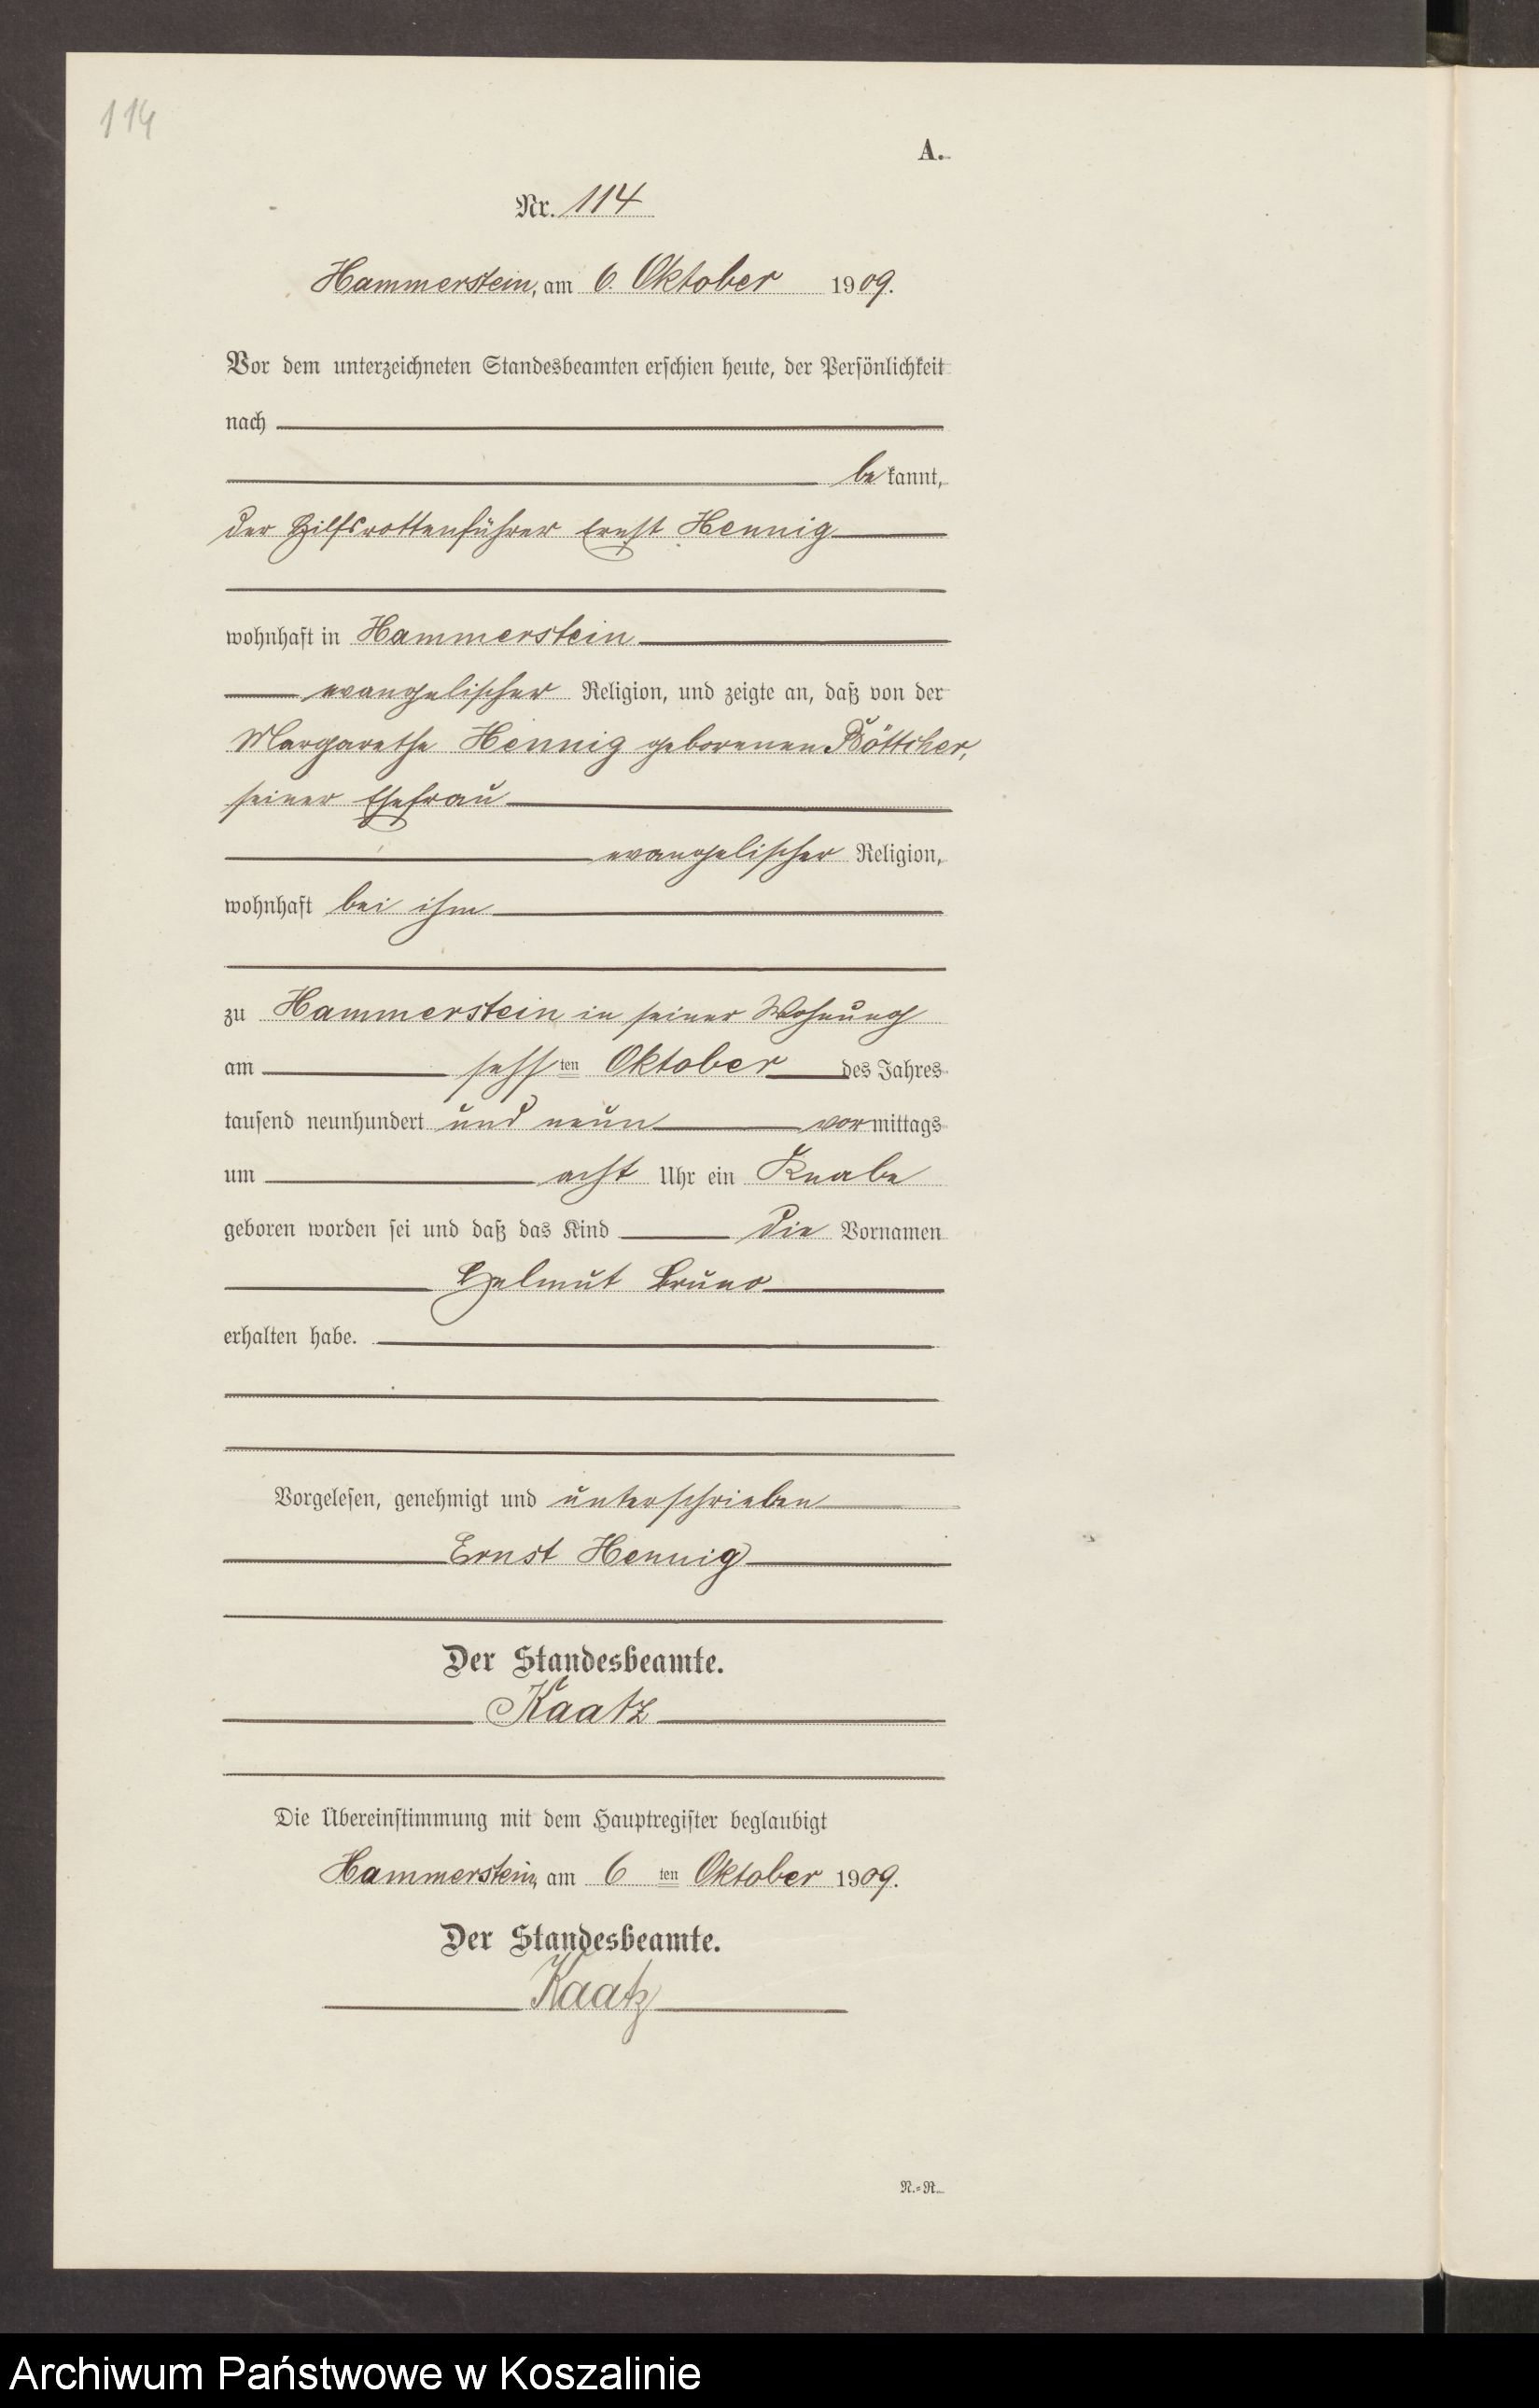 114
A.
Nr. 114
Hammerstein, am 6. Oktober 1909.
Vor dem unterzeichneten Standesbeamten erschien heute, der Persönlichkeit
nach
be kannt,
der Hilfsrottenführer Ernst Hennig
wohnhaft in Hammerstein
evangelischer Religion, und zeigte an, daß von der
Margarethe Hennig geborenen Böttcher,
seiner Ehefrau
evangelischer Religion,
wohnhaft bei ihm
zu Hammerstein in seiner Wohnung
am sechsten Oktober des Jahres
tausend neunhundert und neun vormittags
um acht Uhr ein Knabe
geboren worden sei und daß das Kind die Vornamen
Helmut Bruno
erhalten habe.
Vorgelesen, genehmigt und unterschrieben
Ernst Hennig
Der Standesbeamte.
Kaatz
Die Übereinstimmung mit dem Hauptregister beglaubigt
Hammerstein, am 6 ten Oktober 1909.
Der Standesbeamte.
Kaatz
N.=R.
Archiwum Państwowe w Koszalinie